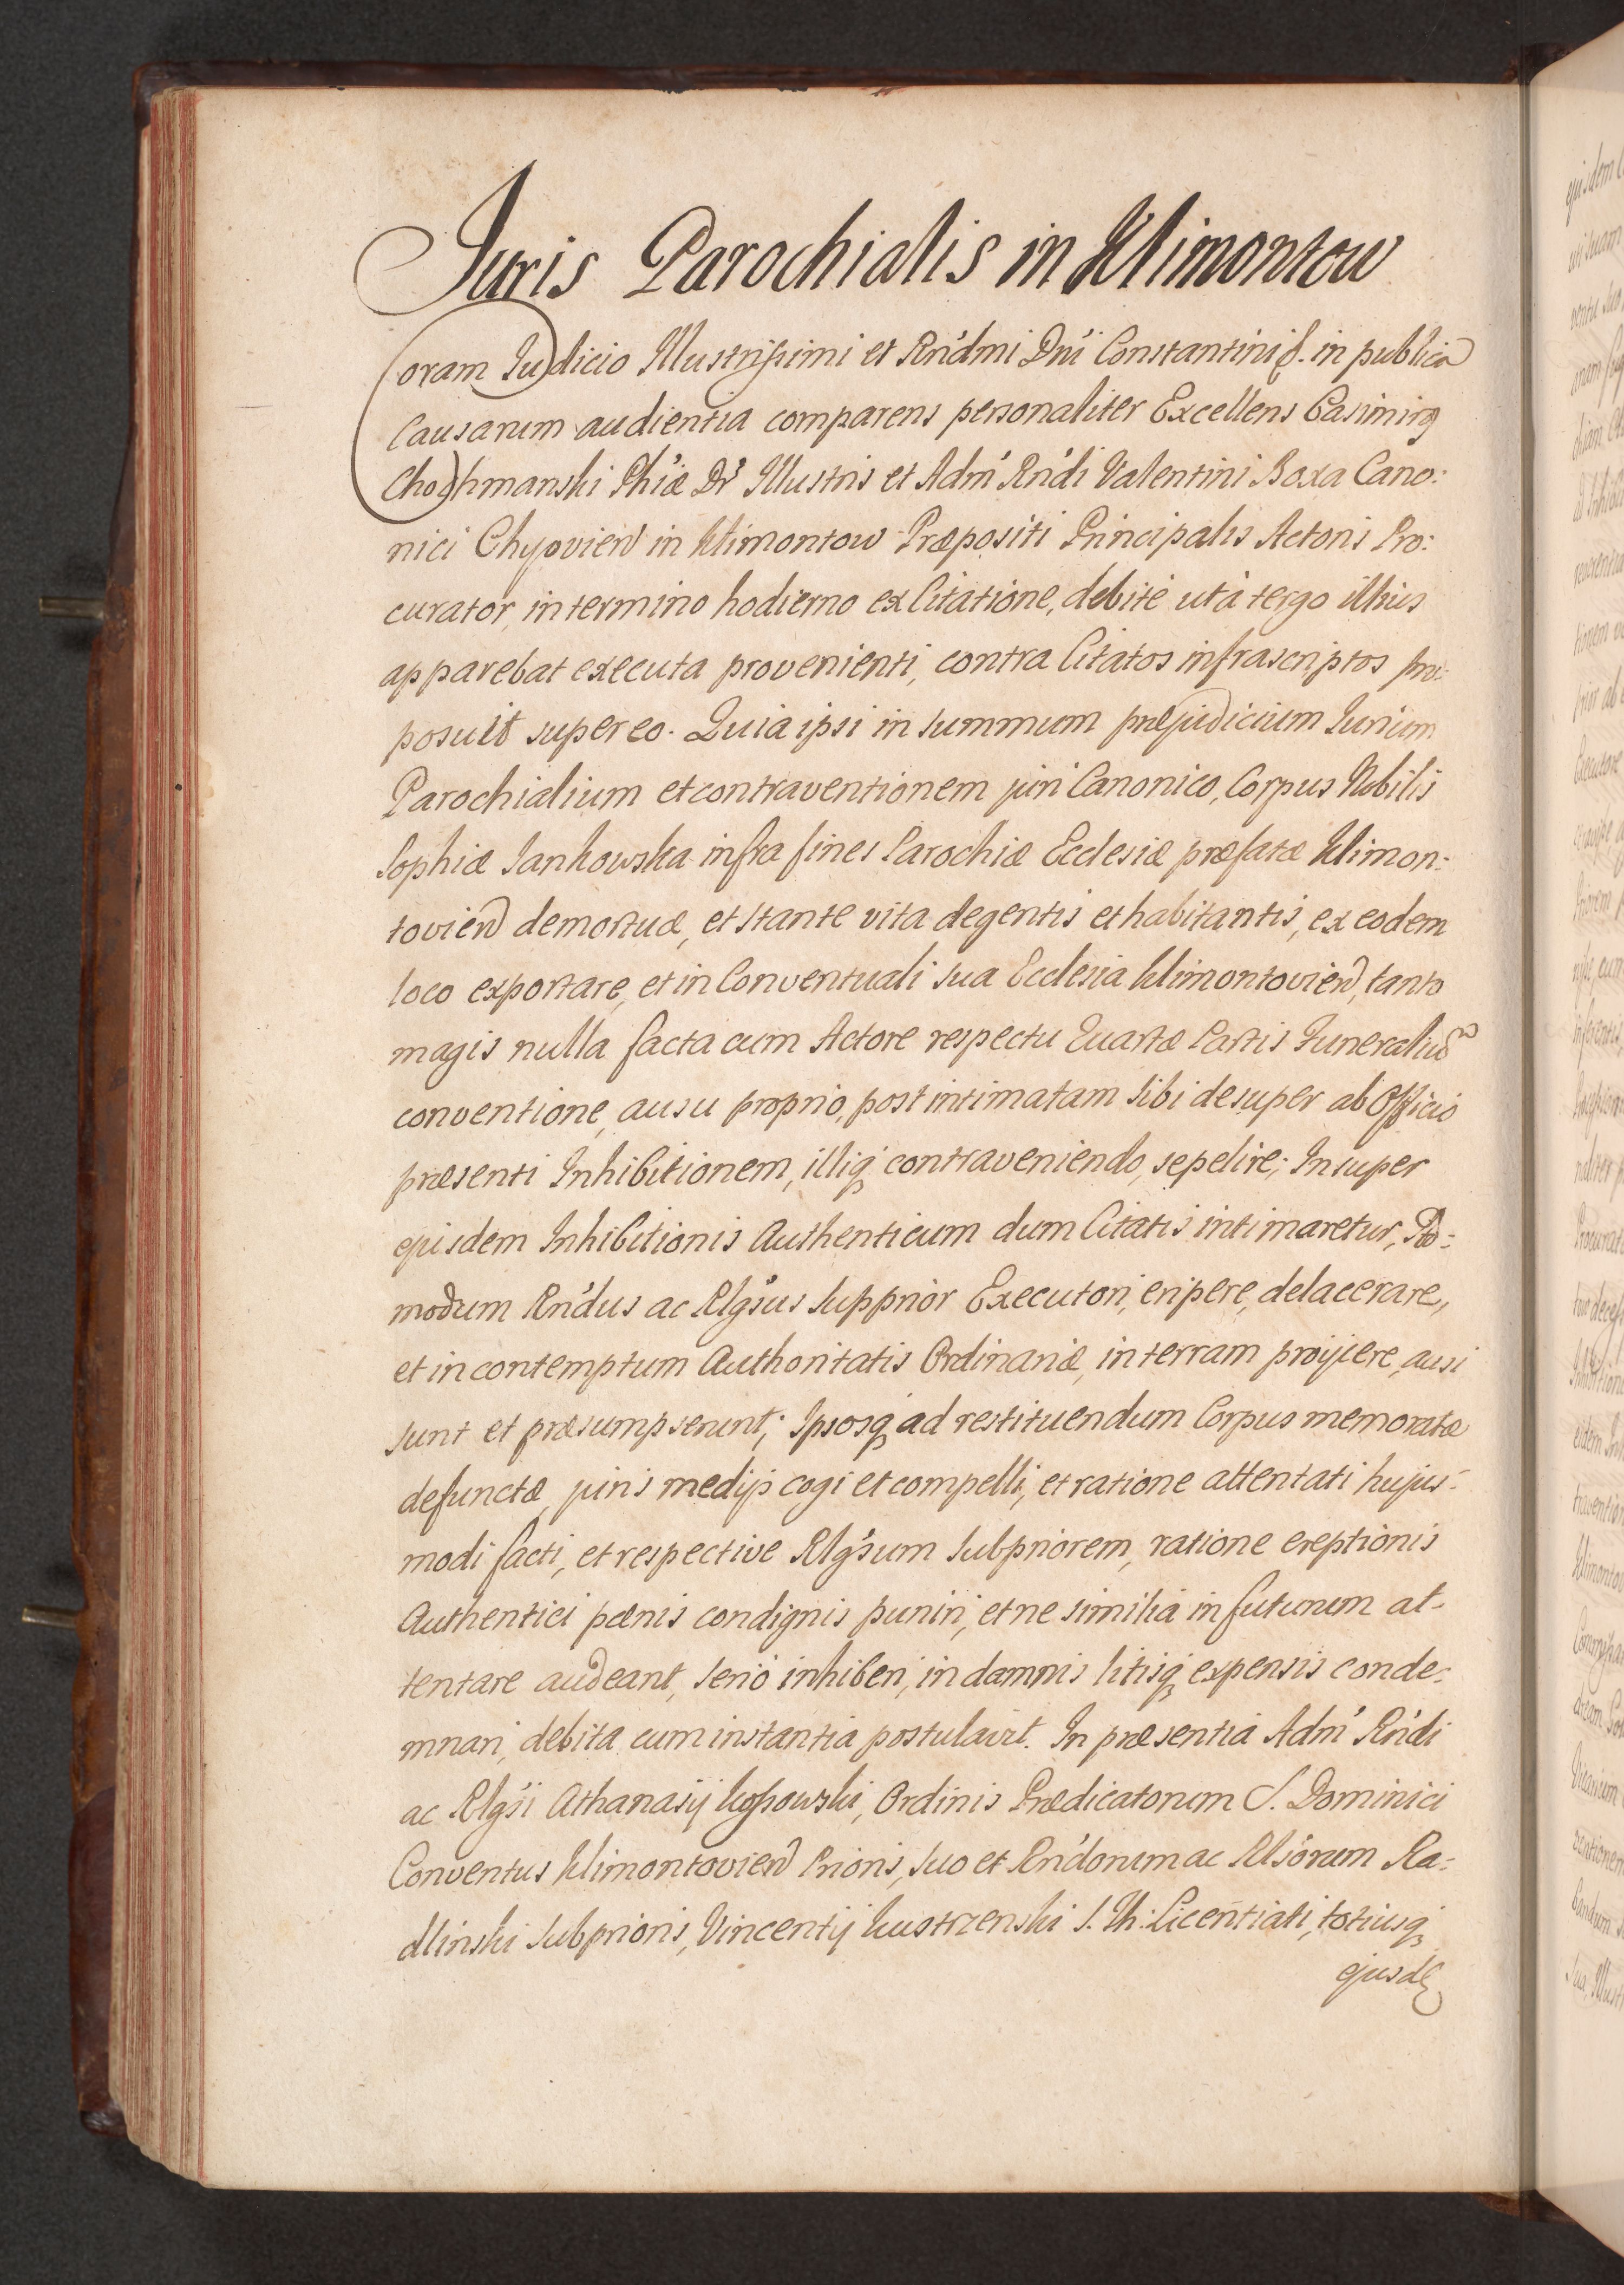 Juris Parochialis in Klimontow
Coram Judicio Illustrissimi et Rn̄dmi Dn̄i Constantini &. in publica
Causarum audientia comparens personaliter Excellens Casimirꝯ
Chochmanski Phiæ Dr̄ Illustris et Adm̄ Rn̄di Valentini Boxa Cano:
nici Chyovien̄ in Klimontow Præpositi Principalis Actoris Pro:
curator, in termino hodierno ex Citatione, debite ut à tergo illius
apparebat executa provenienti, contra Citatos infrascriptos pro:
posuit super eo. Quia ipsi in summum præjudicium Jurium
Parochialium et contraventionem juri Canonico, Corpus Nobilis
Sophiæ Jankowska infra fines Parochiæ Ecclesiæ præfatæ Klimon-
tovien̄ demortuæ, et stante vita degentis et habitantis, ex eodem
loco exportare, et in Conventuali sua Ecclesia Klimontovien̄, tanto
magis nulla facta cum Actore respectu Quartæ Partis Funeralium
conventione, ausu proprio, post intimatam sibi desuper ab Officio
præsenti Inhibitionem, illiq́ contraveniendo, sepelire; Insuper
ejusdem Inhibitionis Authenticum dum Citatis intimaretur,
modum Rn̄dus ac Rlgs̄us Supprior Executori, eripere, delacerare,
et in contemptum Authoritatis Ordinariæ, in terram proijcere, ausi
sunt et præsumpserunt; Ipsosq́ ad restituendum Corpus memoratæ
defunctæ, juris medijs cogi et compelli, et ratione attentati hujus-
modi facti, et respective Rlgs̄um Subpriorem, ratione ereptionis
Authentici pœnis condignis puniri, et ne similia in futurum at-
tentare audeant, serió inhiberi, in damnis litisq́ expensis conde-
mnari, debita cum instantia postulavit. In præsentia Adm̄ Rn̄di
ac Rlgs̄i Athanasij Kossowski, Ordinis Prædicatorum S. Dominici
Conventus Klimontovien̄ Prioris, suo et Rn̄dorum ac Rlsórum Ra-
dlinski Subprioris, Vincentij Kustrzenski S. Th: Licentiati, totiusq́
ejusdē